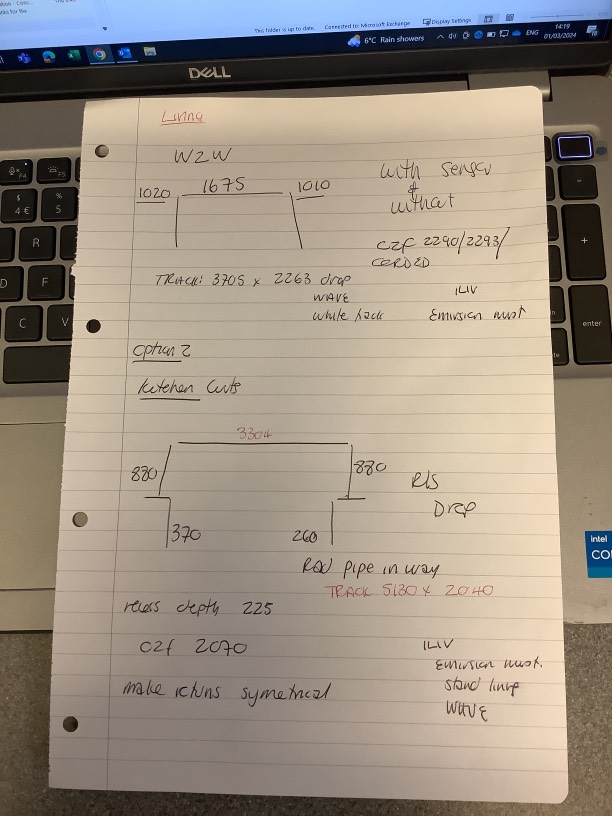 This folder is up to date. Connected to: Microsoft Exchange Display Settings
6°C Rain showers ENG 14:19
01/03/2024
DELL
Living
W2W
1020 1675 1010
with sensor
&
without
CZF 2290/2293/
CORDED
TRACK: 3705 x 2263 drop
WAVE
white track
ILIV
Emirsion must
Option 2
Kitchen Curts
3304
880
880
370
260
R/S
Drop
Rad pipe in way
TRACK 5130 x 2040
recess depth 225
CZf 2070
make returns symetrical
ILIV
Emirsion must.
stand lining
WAVE
F4
F5
$
4 €
%
5
R
D
F
C
V
-
+
enter
intel
CO